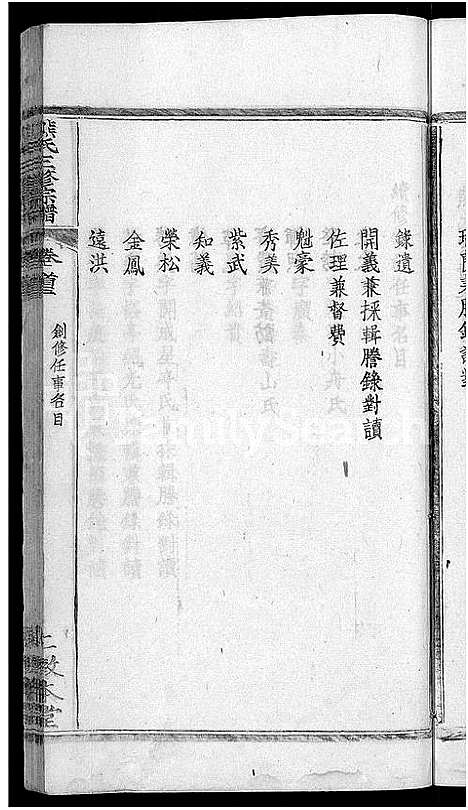 鍊遺
開義兼採輯謄錄對讀
佐理兼督費
魁豪
秀美
紫武
知義
榮松
金鳳
遠洪
熊氏三修宗譜
卷首
創修任事名目
敦本堂